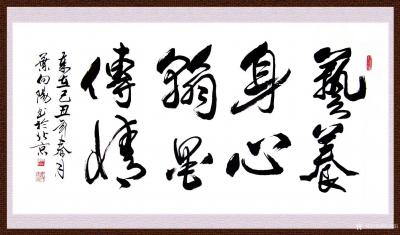 藝養
身心
翰墨
傳情
歲在己丑年春月
葉向陽书於北京